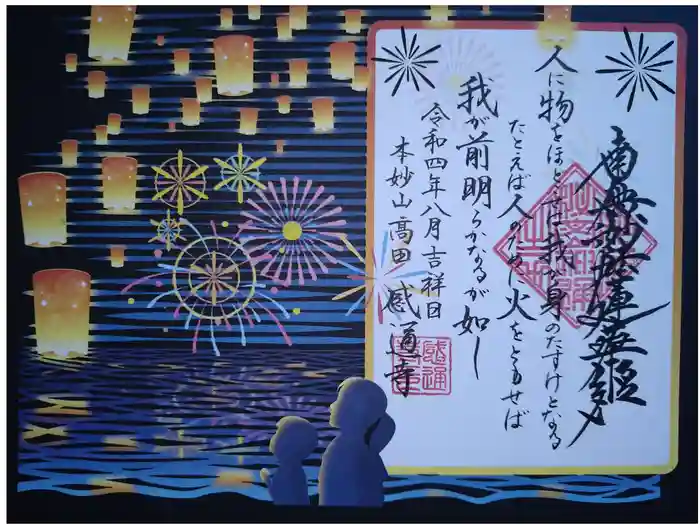 南無妙法蓮華経
人に物をほどこせば我が身のたすけとなる
たとえば人のために火をともせば
我が前明らかなるが如し
令和四年八月吉祥日
本妙山高田感通寺
感通